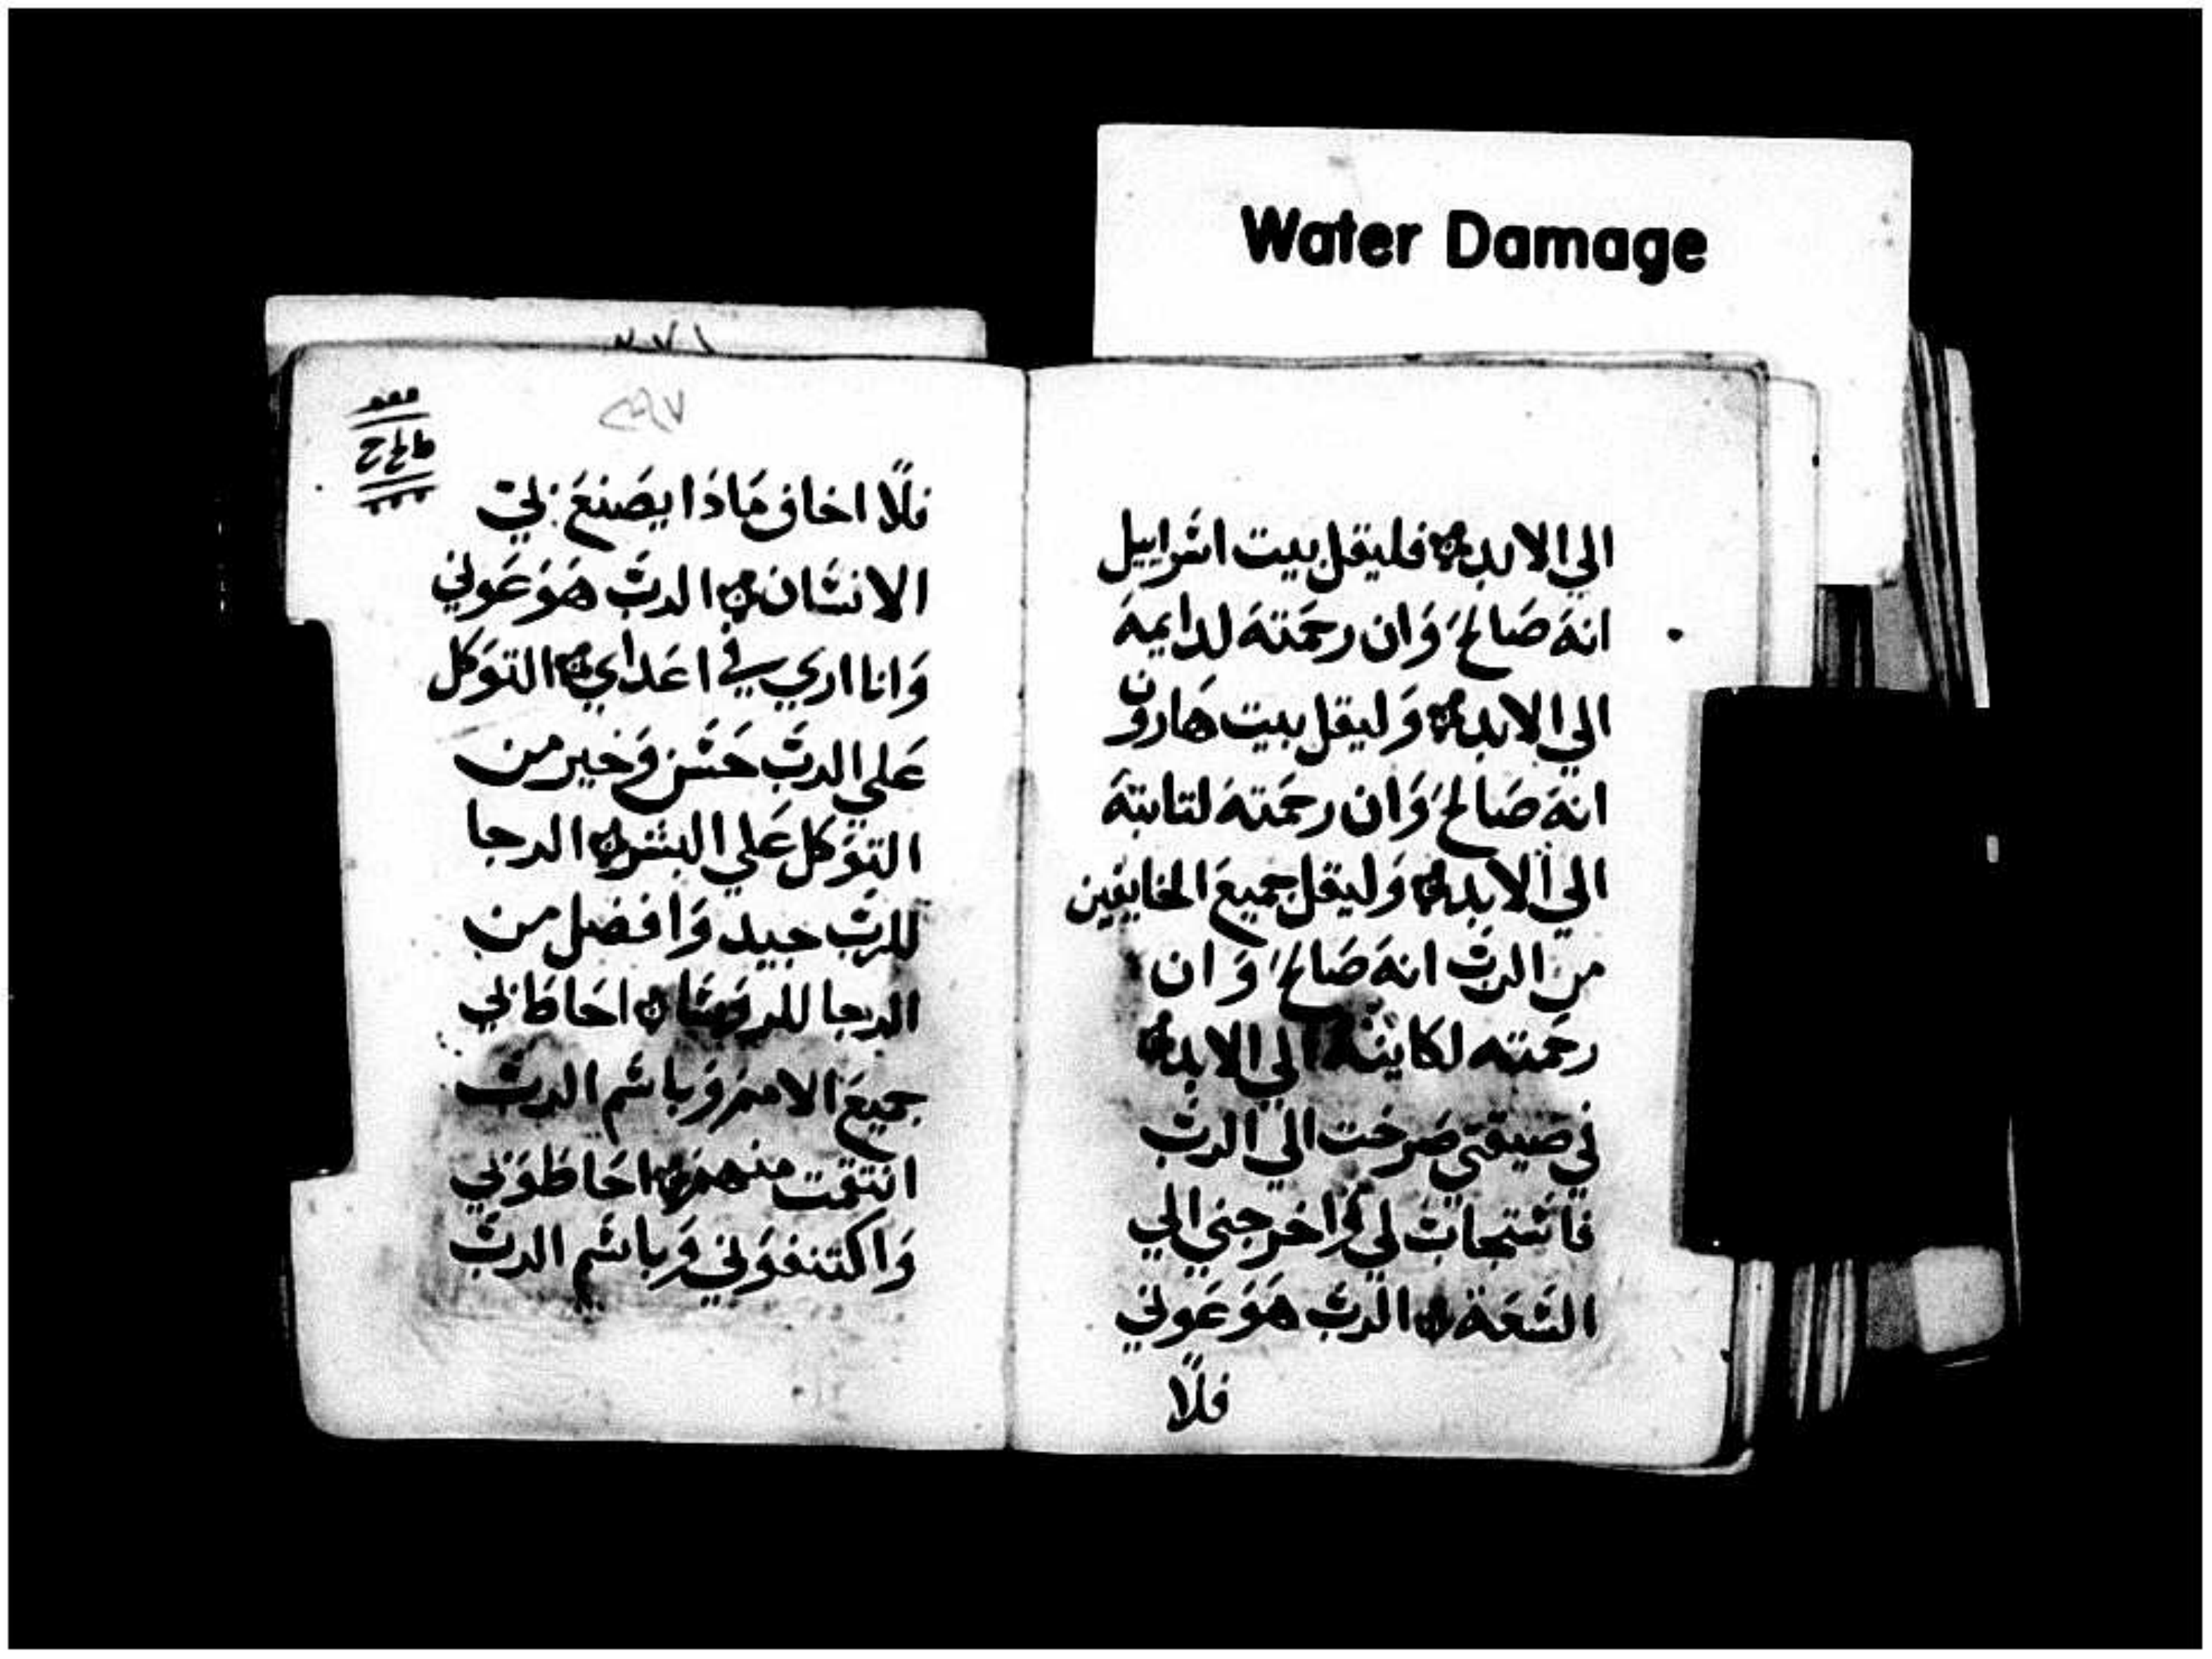 Water Damage
الي الابد فليقل بيت اسرابيل
انه صَالح وَان رحمَته لدايمه
الي الابد وَليقل بيت هَارون
انه صَالح وَان رحمَته لثابته
الي الابد وَليقل جميعَ الخايفين
من الربّ انه صَالح وَان
رحمَته لكاينه الي الابد
في ضيقتي صَرخت الي الربّ
فاستجابَ لي وَاخرجني الي
السَعَة الربّ هوَ عَوني
فلًا
٢٩٧
فلًا اخاف مَاذا يصَنعَ بي
الانسَان الربّ هوَ عَوني
وَانا اري في اعدَاي التوَكل
عَلي الربّ حَسَن وَخير من
التوَكل عَلي البشر الرجا
للربّ جيد وَافضل من
الرجا للروسَا احَاطَ بي
جميعَ الامم وَباسم الربّ
انتقمت منهم احَاطوَ بي
وَاكتنفوَني وَباسم الربّ